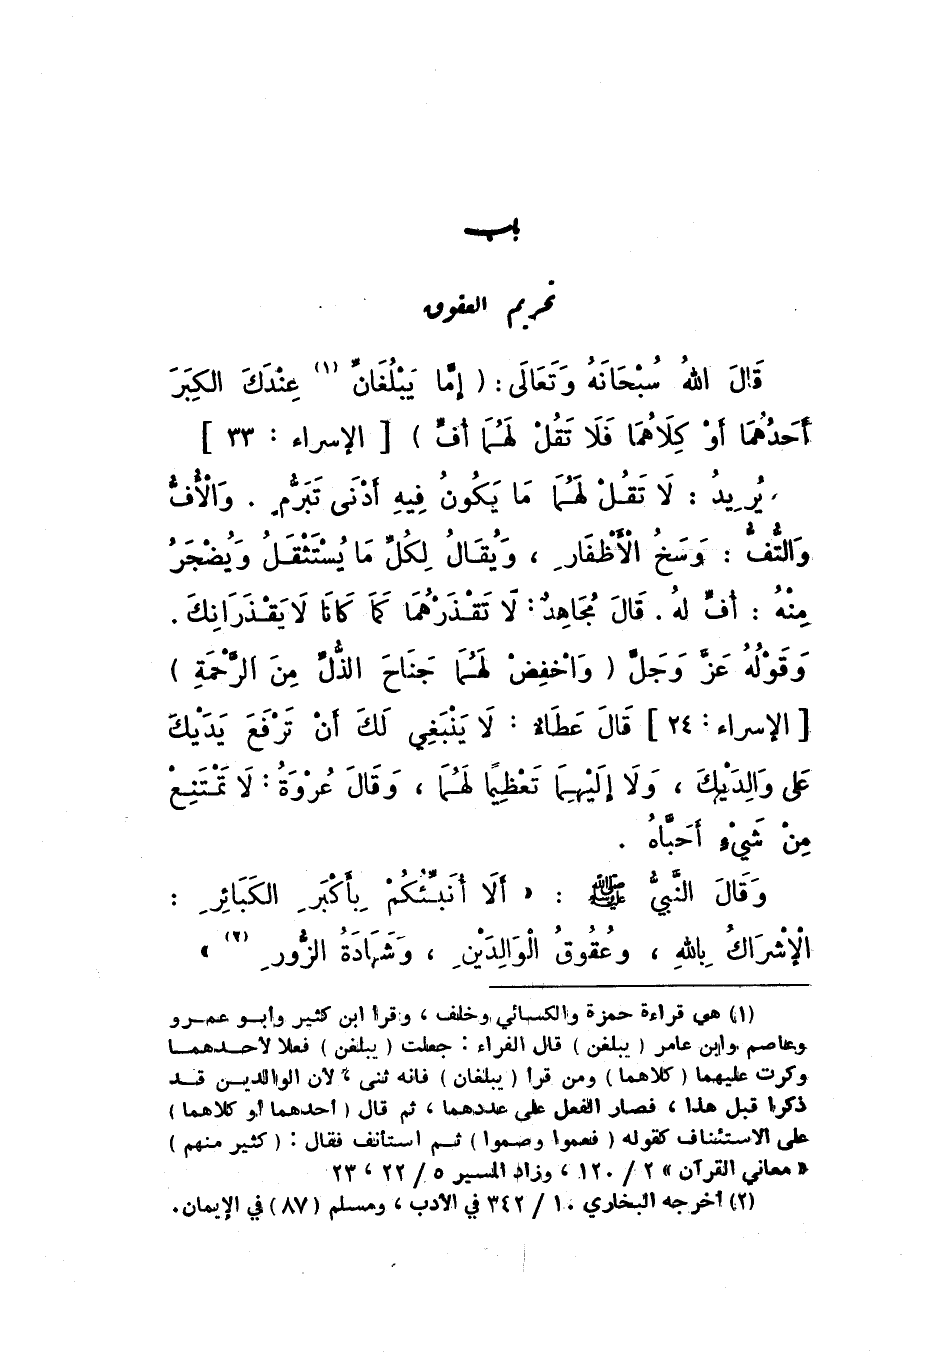 باب
تحريم العقوق
قَالَ اللهُ سُبْحَانَهُ وَتَعَالَى : ( إِمَّا يَبْلُغَانِّ (١) عِنْدَكَ الكِبَرَ
أَحَدُهُمَا أَوْ كِلَاهُمَا فَلَا تَقُلْ لَهُمَا أُفٍّ ) [ الإسراء : ٣٣ ]
يُرِيدُ : لَا تَقُلْ لَهُمَا مَا يَكُونُ فِيهِ أَدْنَى تَبَرُّمٍ . وَالْأُفُّ
وَالتُّفُّ : وَسَخُ الْأَظْفَارِ ، وَيُقَالُ لِكُلِّ مَا يُسْتَثْقَلُ وَيُضْجَرُ
مِنْهُ : أُفٍّ لَهُ . قَالَ مُجَاهِدٌ : لَا تَقْذَرْهُمَا كَمَا كَانَا لَا يَقْذَرَانِكَ .
وَقَوْلُهُ عَزَّ وَجَلَّ ( وَاخْفِضْ لَهُمَا جَنَاحَ الذُّلِّ مِنَ الرَّحْمَةِ )
[ الإسراء : ٢٤ ] قَالَ عَطَاءٌ : لَا يَنْبَغِي لَكَ أَنْ تَرْفَعَ يَدَيْكَ
عَلى وَالِدَيْكَ ، وَلَا إِلَيْهِمَا تَعْظِيمًا لَهُمَا ، وَقَالَ عُرْوَةُ : لَا تَمْتَنِعْ
مِنْ شَيْءٍ أَحَبَّاهُ .
وَقَالَ النَّبِيُّ ﷺ : « أَلَا أُنَبِّئُكُمْ بِأَكْبَرِ الكَبَائِرِ :
الْإِشْرَاكُ بِاللهِ ، وَعُقُوقُ الْوَالِدَيْنِ ، وَشَهَادَةُ الزُّورِ (٢) »
(١) هي قراءة حمزة والكسائي وخلف ، وقرأ ابن كثير وأبو عمرو
وعاصم وابن عامر ( يبلغن ) قال الفراء : جعلت ( يبلغن ) فعلا لأحدهما
وكرت عليهما ( كلاهما ) ومن قرأ ( يبلغان ) فانه ثنى ، لأن الوالدين قد
ذكرا قبل هذا ، فصار الفعل على عددهما ، ثم قال ( أحدهما أو كلاهما )
على الاستئناف كقوله ( فعموا وصموا ) ثم استأنف فقال : ( كثير منهم )
« معاني القرآن » ٢ / ١٢٠ ، وزاد المسير ٥ / ٢٢ ، ٢٣
(٢) أخرجه البخاري ١٠ / ٣٤٢ في الأدب ، ومسلم ( ٨٧ ) في الإيمان .